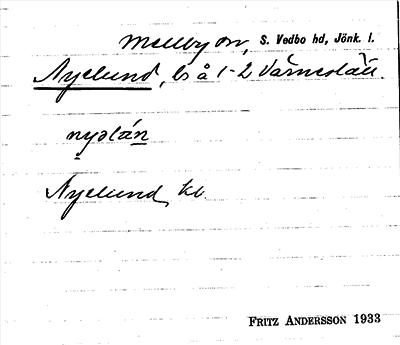 Mellby sn, S. Vedbo hd, Jönk. l.
Nyelund, ls å 1-2 Värneslätt.
nyəlún
Nyelund kl.
FRITZ ANDERSSON 1933